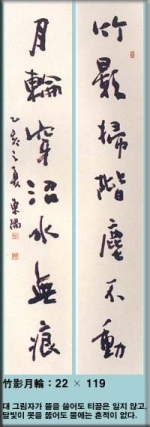 竹影掃階塵不動
月輪穿沼水無痕
乙亥之夏 東隅
竹影月輪 : 22 × 119
대 그림자가 뜰을 쓸어도 티끌은 일지 않고,
달빛이 못을 뚫어도 물에는 흔적이 없다.